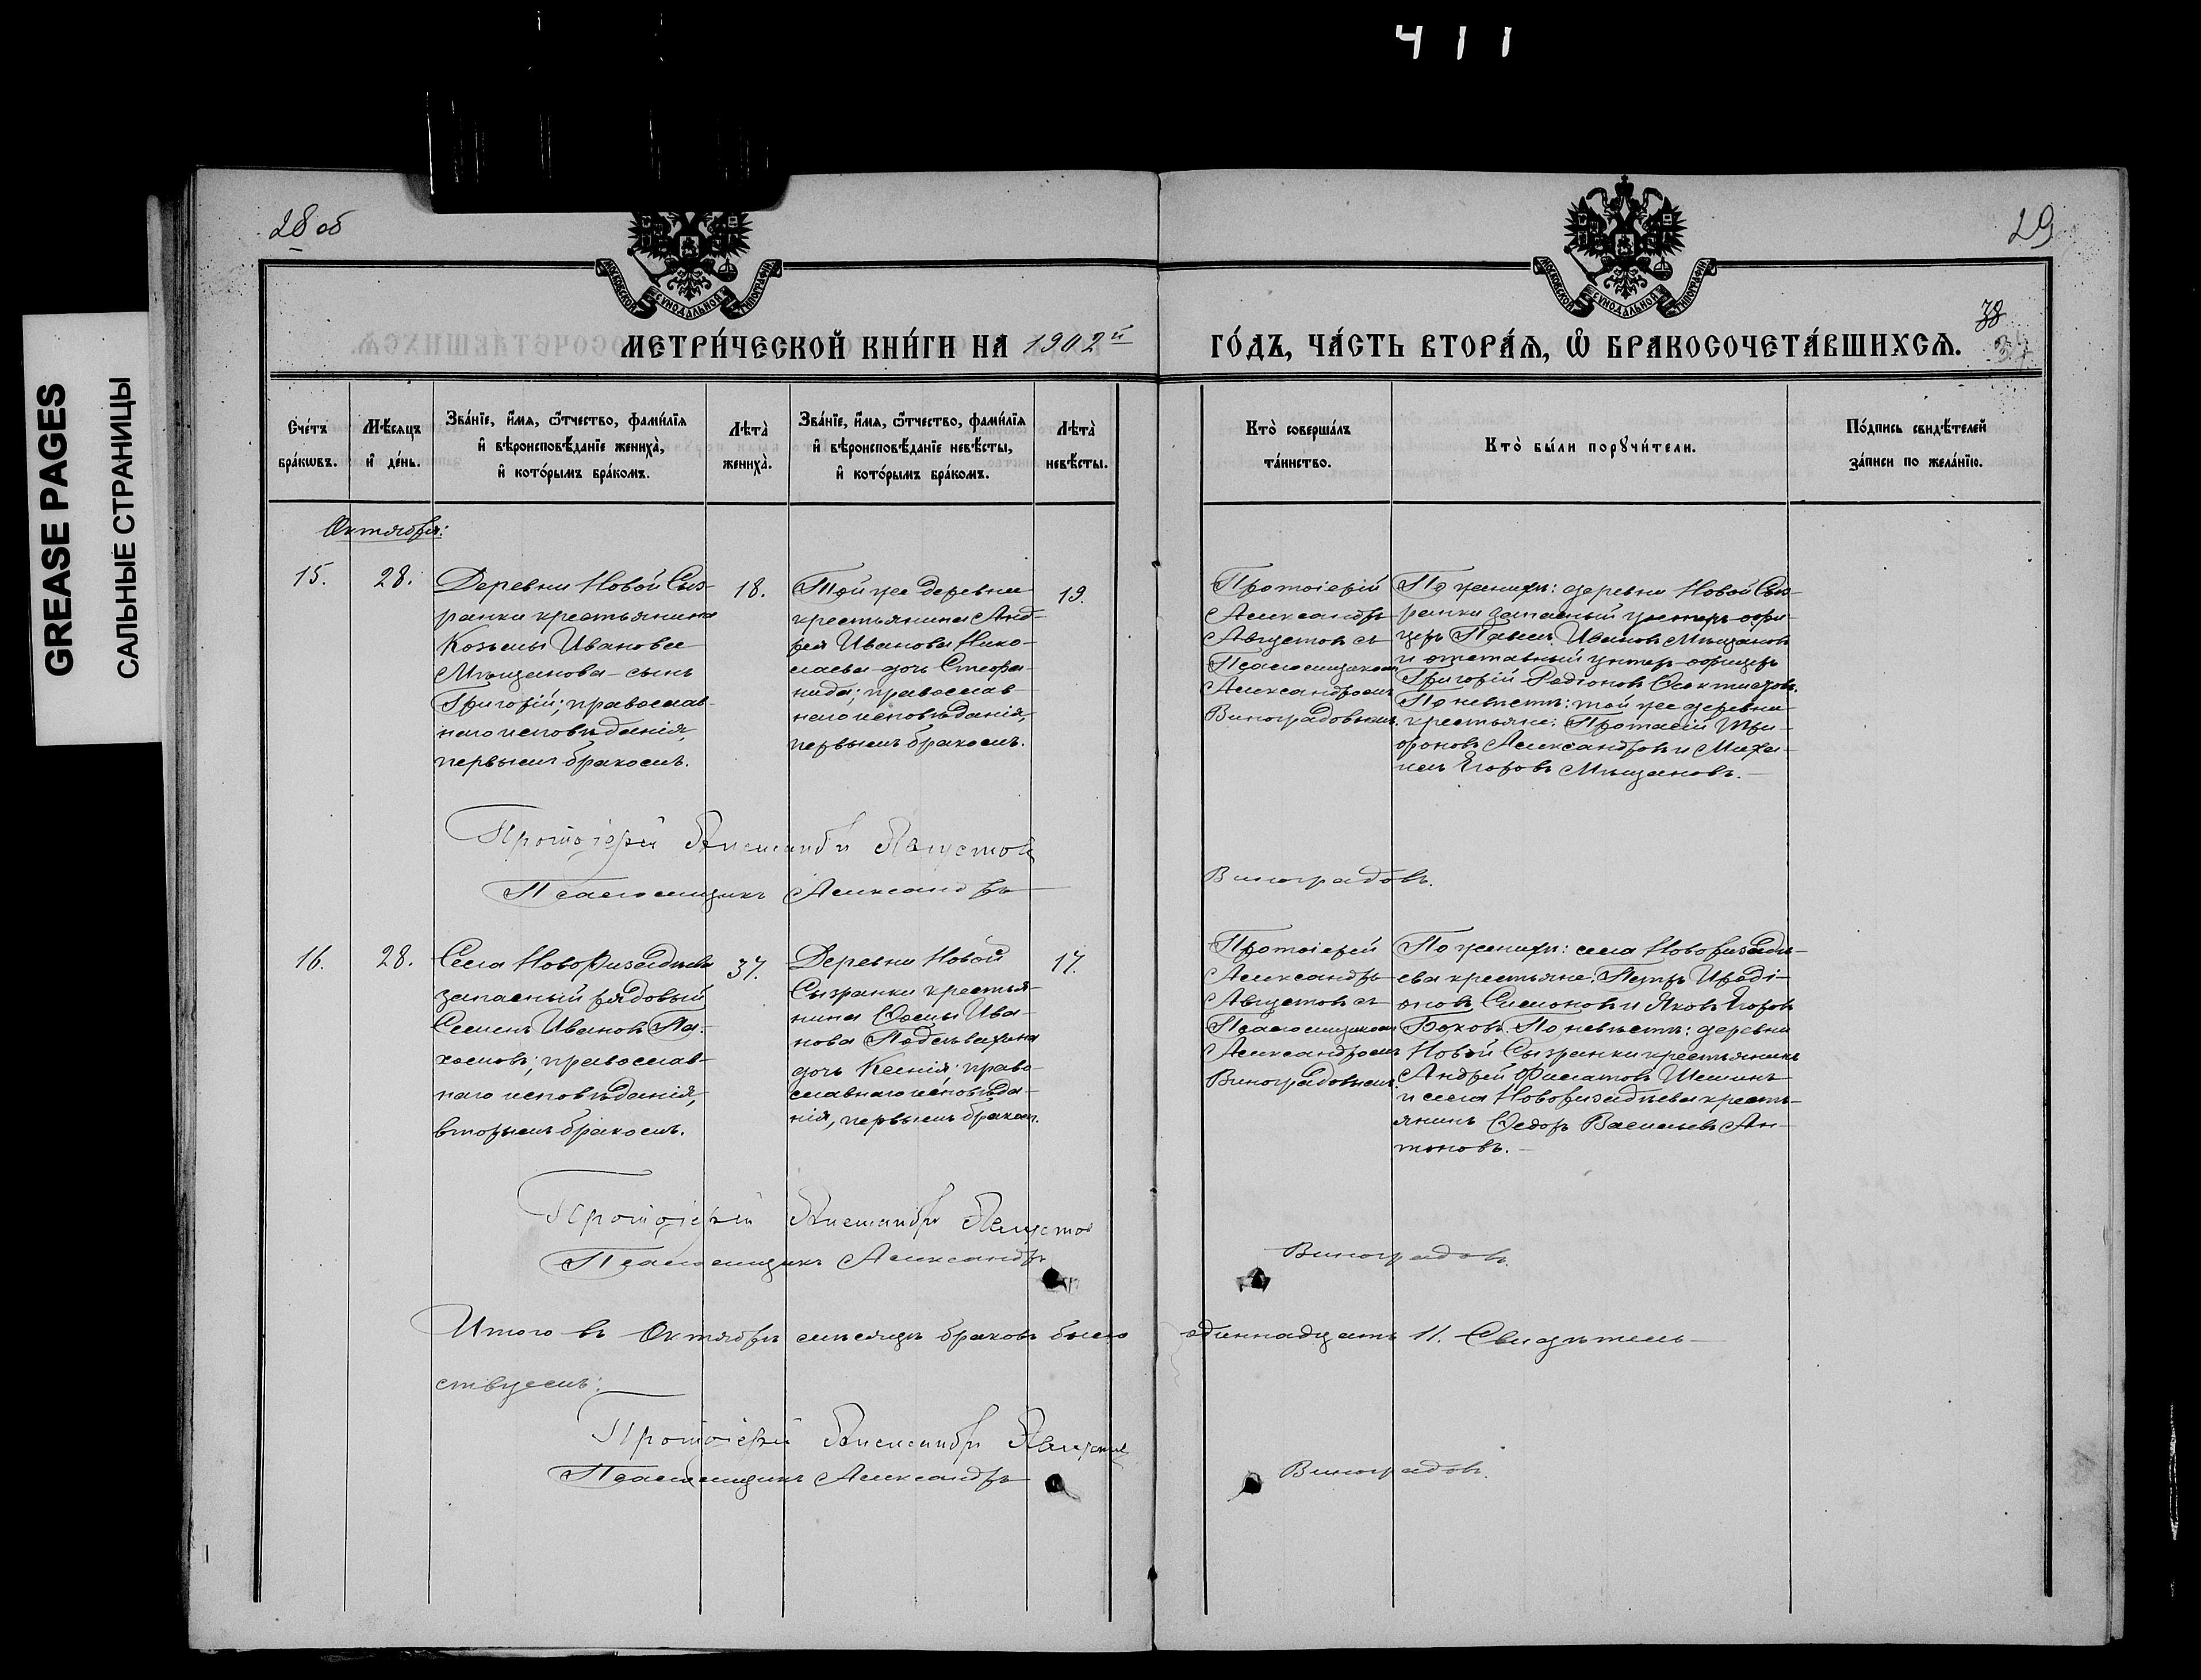 411
GREASE PAGES
САЛЬНЫЕ СТРАНИЦЫ
28 об
29
38
МОСКОВСКОЙ СУНОДАЛЬНОЙ ТИПОГРАФІИ
МОСКОВСКОЙ СУНОДАЛЬНОЙ ТИПОГРАФІИ
МЕТРИ́ЧЕСКОЙ КНИ́ГИ НА 1902й ГО́ДЪ, ЧА́СТЬ ВТОРА́Ѧ, Ѡ БРАКОСОЧЕТА́ВШИХСѦ.
Сче́тъ
бра́кѡвъ.
Мѣ́сяцъ
и де́нь.
Зва́нїе, и́мя, ѻ́тчество, фами́лїя
и вѣроисповѣ́данїе жениха̀,
и кото́рымъ бра́комъ.
Лѣта̀
жениха̀.
Зва́нїе, и́мя, ѻ́тчество, фами́лїя
и вѣроисповѣ́данїе невѣ́сты,
и кото́рымъ бра́комъ.
Лѣта̀
невѣ́сты.
Кто̀ соверша́лъ
та́инство.
Кто̀ бы́ли порꙋчи́тели.
По́дпись свидѣ́телей
за́писи по жела́нїю.
Октябрь:
15.
28.
Деревни Новой Сыз-
ранки крестьянина
Козьмы Иванова
Мѣщанова - сынъ
Григорій; православ-
наго исповѣданія,
первымъ бракомъ.
18.
Той же деревни
крестьянина Анд-
рея Иванова Нико-
лаева дочь Стефа-
нида; православ-
наго исповѣданія,
первымъ бракомъ.
19.
Протоіерей
Александръ
Августовъ съ
Псаломщикомъ
Александромъ
Виноградовымъ.
По женихѣ: деревни Новой Сыз-
ранки запасный унтеръ-офи-
церъ Павелъ Ивановъ Мѣщановъ
и отставный унтеръ-офицеръ
Григорій Родіоновъ
По невѣстѣ: той же деревни
крестьяне: Протасій Три-
фоновъ Александровъ и Миха-
илъ Егоровъ Мѣщановъ.
Протоіерей Александръ Августовъ
Псаломщикъ Александръ Виноградовъ.
16.
28.
Села Новоризадѣева
запасный рядовый
Семенъ Ивановъ Па-
хомовъ; православ-
наго исповѣданія,
вторымъ бракомъ.
37.
Деревни Новой
Сызранки крестья-
нина Ѳомы Ива-
нова
дочь Ксенія; право-
славнаго исповѣда-
нія, первымъ браком.
17.
Протоіерей
Александръ
Августовъ съ
Псаломщикомъ
Александромъ
Виноградовымъ.
По женихѣ: села Новоризадѣ-
ева крестьяне: Петръ Иродi-
оновъ Симоновъ и Яковъ Егоровъ
Боковъ. По невѣстѣ: деревни
Новой Сызранки крестьянинъ
Андрей Филатовъ Шишинъ
и села Новоризадѣева кресть-
янинъ Ѳедоръ Васильевъ Ан-
тоновъ.
Протоіерей Александръ Августовъ
Псаломщикъ Александръ Виноградовъ.
Итого въ Октябрѣ мѣсяцѣ браковъ было одиннадцать 11. Свидѣтель-
ствуемъ:
Протоіерей Александръ Августовъ
Псаломщикъ Александръ Виноградовъ.